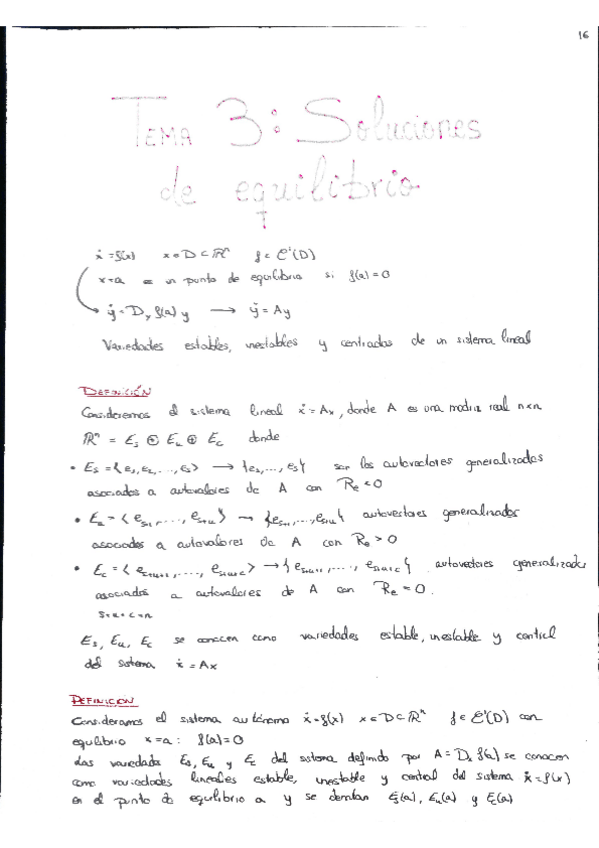 16
TEMA 3: Soluciones
de equilibrio
ẋ = f(x)   x ∈ D ⊂ ℝⁿ   f ∈ C¹(D)
x=a es un punto de equilibrio si f(a)=0
ẏ = Dₓ f(a) y → ẏ = Ay
Variedades estables, inestables y centradas de un sistema lineal
DEFINICIÓN
Consideremos el sistema lineal ẋ = Ax, donde A es una matriz real n×n
ℝⁿ = Es ⊕ Eu ⊕ Ec donde
• Es = ⟨e₁, e₂, ..., es⟩ → {e₁, ..., es} son los autovectores generalizados
asociados a autovalores de A con Re < 0
• Eu = ⟨es+1, ..., es+u⟩ → {es+1, ..., es+u} autovectores generalizados
asociados a autovalores de A con Re > 0
• Ec = ⟨es+u+1, ..., es+u+c⟩ → {es+u+1, ..., es+u+c} autovectores generalizados
asociados a autovalores de A con Re = 0.
s+u+c=n
Es, Eu, Ec se conocen como variedades estable, inestable y central
del sistema ẋ = Ax
DEFINICIÓN
Consideramos el sistema autónomo ẋ = f(x) x ∈ D ⊂ ℝⁿ f ∈ C¹(D) con
equilibrio x=a: f(a)=0
Las variedades Es, Eu y Ec del sistema definido por A = Dₓ f(a) se conocen
como variedades lineales estable, inestable y central del sistema ẋ = f(x)
en el punto de equilibrio a y se denotan Es(a), Eu(a) y Ec(a)